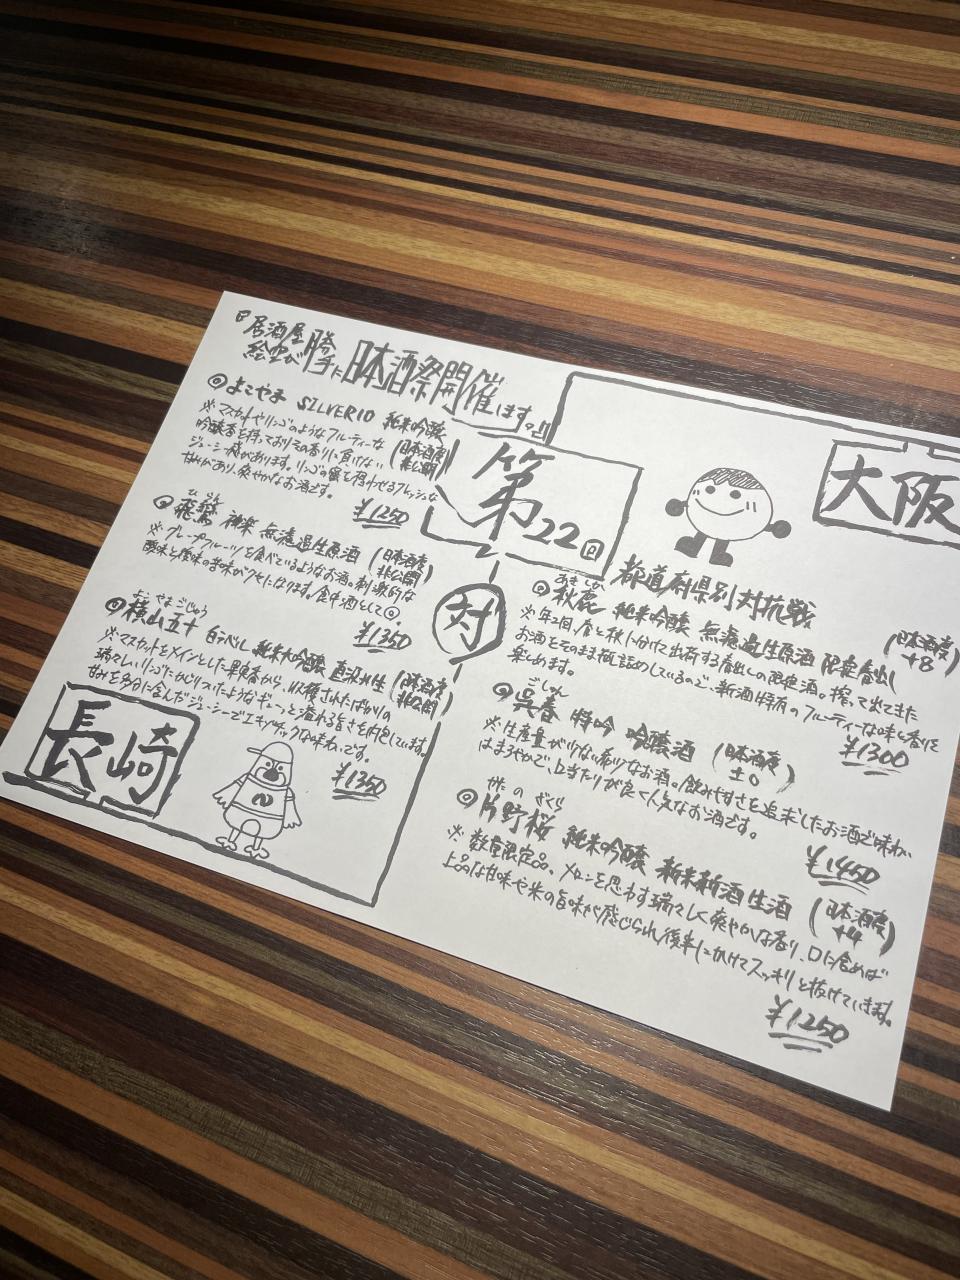 居酒屋
絵空が勝手に日本酒祭開催します。!!
第22回
都道府県別対抗戦
対
◎よこやま SILVER10 純米吟醸
(日本酒度
非公開)
※マスカットやリンゴのようなフルーティーな
吟醸香を持っておりその香りに負けない
ジューシー感があります。リンゴの蜜を思わせるフレッシュな
甘みがあり、爽やかなお酒です。
¥1250
ひ らん
◎飛鸞 神楽 無濾過生原酒
(日本酒度
非公開)
※グレープフルーツを食べているようなお酒。刺激的な
酸味と後味の苦味がクセになります。食中酒として◎。
¥1350
よこ やま ごじゅう
◎横山五十 白うへし 純米大吟醸 直汲み生
(日本酒度
非公開)
※マスカットをメインとした果実香から、収穫されたばかりの
瑞々しいリンゴにかじりついたようなギューっと溢れる旨さを内包しています。
甘みを多分に含んだジューシーでエキゾチックな味わいです。
¥1350
長崎
大阪
あき しか
◎秋鹿 純米吟醸 無濾過生原酒 限定春出し
(日本酒度
+8)
※年2回、春と秋に分けて出荷する春出しの限定酒。搾って出てきた
お酒をそのまま瓶詰めしているので、新酒特有のフルーティーな味と香りを
楽しめます。
¥1300
ごしゅん
◎呉春 特吟 吟醸酒
(日本酒度
±0)
※生産量が少ない希少なお酒。飲みやすさを追求したお酒で味わい
はまろやかで、口当たりが良く人気なお酒です。
¥1450
かた の ざくら
◎片野桜 純米吟醸 新米新酒生酒
(日本酒度
+4)
※数量限定品。メロンを思わす瑞々しく爽やかな香り、口に含めば
上品な甘味や米の旨味が感じられ後半にかけてスッキリと抜けていきます。
¥1250